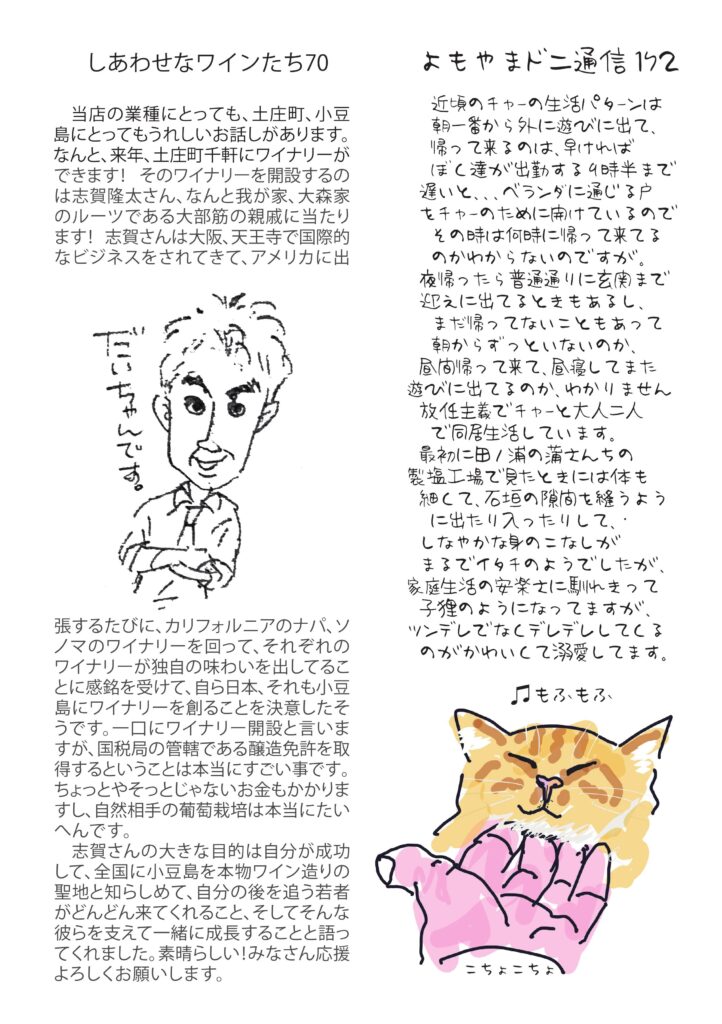 しあわせなワインたち70
　当店の業種にとっても、土庄町、小豆
島にとってもうれしいお話しがあります。
なんと、来年、土庄町千軒にワイナリーが
できます！ そのワイナリーを開設するの
は志賀隆太さん、なんと我が家、大森家
のルーツである大部筋の親戚に当たり
ます！ 志賀さんは大阪、天王寺で国際的
なビジネスをされてきて、アメリカに出
だいちゃんです。
張するたびに、カリフォルニアのナパ、ソ
ノマのワイナリーを回って、それぞれの
ワイナリーが独自の味わいを出してるこ
とに感銘を受けて、自ら日本、それも小豆
島にワイナリーを創ることを決意したそ
うです。一口にワイナリー開設と言いま
すが、国税局の管轄である醸造免許を取
得するということは本当にすごい事です。
ちょっとやそっとじゃないお金もかかりま
すし、自然相手の葡萄栽培は本当にたい
へんです。
　志賀さんの大きな目的は自分が成功
して、全国に小豆島を本物ワイン造りの
聖地と知らしめて、自分の後を追う若者
がどんどん来てくれること、そしてそんな
彼らを支えて一緒に成長することと語っ
てくれました。素晴らしい！みなさん応援
よろしくお願いします。
よもやまドニ通信192
近頃のチャーの生活パターンは
朝一番から外に遊びに出て、
帰って来るのは、早ければ
ぼく達が出勤する9時半まで
遅いと、、、ベランダに通じる戸
をチャーのために開けているので
その時は何時に帰って来てる
のかわからないのですが。
夜帰ったら普通通りに玄関まで
迎えに出てるときもあるし、
まだ帰ってないこともあって
朝からずっといないのか、
昼間帰って来て、昼寝してまた
遊びに出てるのか、わかりません
放任主義でチャーと大人二人
で同居生活しています。
最初に田ノ浦の蒲さんちの
製塩工場で見たときには体も
細くて、石垣の隙間を縫うよう
に出たり入ったりして、・
しなやかな身のこなしが
まるでイタチのようでしたが、
家庭生活の安楽さに馴れきって
子狸のようになってますが、
ツンデレでなくデレデレしてくる
のがかわいくて溺愛してます。
♫もふもふ
こちょこちょ